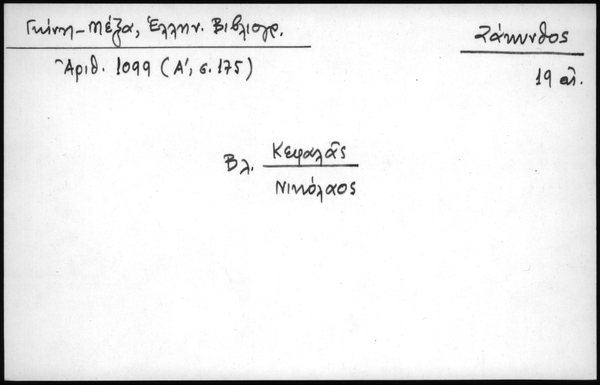 Γκίνη-Μέξα, Ἑλλην. Βιβλιογρ.
Ζάκυνθος
Ἀριθ. 1099 (Α', σ. 175)
19 αἰ.
Βλ. Κεφαλᾶς
Νικόλαος